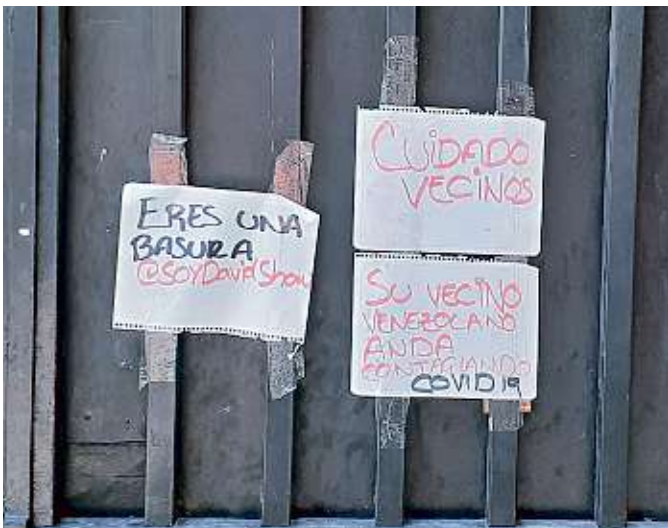 ERES UNA
BASURA
@SOYDavidShow
CUIDADO
VECINOS
SU VECINO
VENEZOLANO
ANDA
CONTAGIANDO
COVID 19